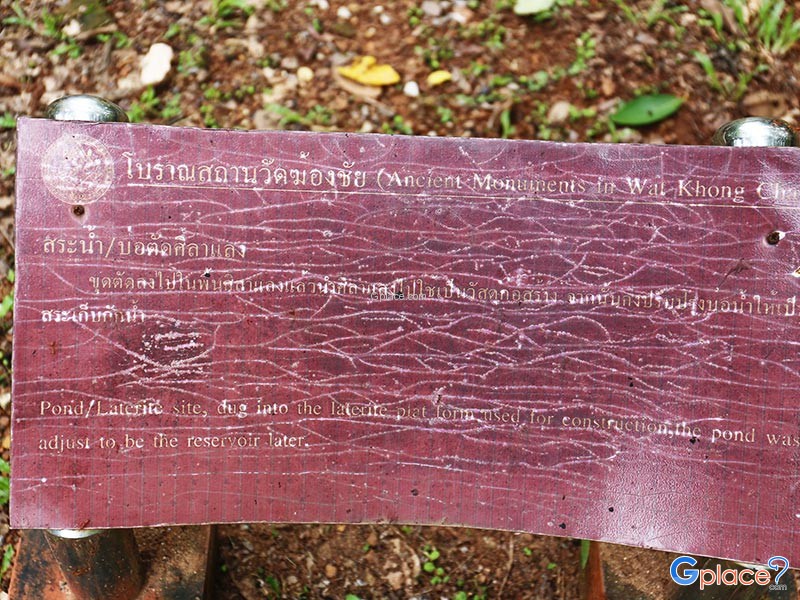 โบราณสถานวัดฆ้องชัย (Ancient Monuments in Wat Khong Cha
สระน้ำ/บ่อตัดศิลาแลง
ขุดตัดลงไปในพื้นศิลาแลงแล้วนำศิลาแลงไปใช้เป็นวัสดุก่อสร้าง จากนั้นจึงปรับปรุงบ่อน้ำให้เป็
สระเก็บกักน้ำ
Gplace.com
Pond/Laterite site, dug into the laterite plat form used for construction,the pond was
adjust to be the reservoir later.
Gplace?.com